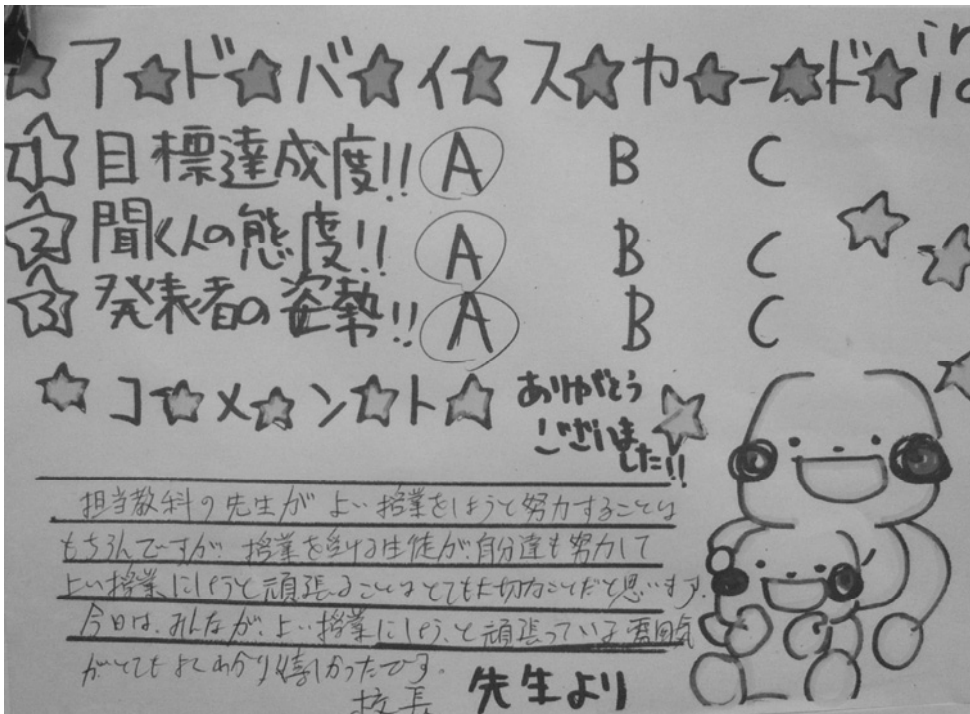 アドバイスカード in
1 目標達成度!! A B C
2 聞く人の態度!! A B C
3 発表者の姿勢!! A B C
コメント
ありがとう
ございま
した!!
担当教科の先生が よい授業をしようと努力することは
もちろんですが、授業を受ける生徒が、自分達も努力して
よい授業にしようと頑張ることはとても大切なことだと思います。
今日は、みんなが、よい授業にしよう、と頑張っている雰囲気
がとてもよくわかり嬉しかったです。
校長 先生より